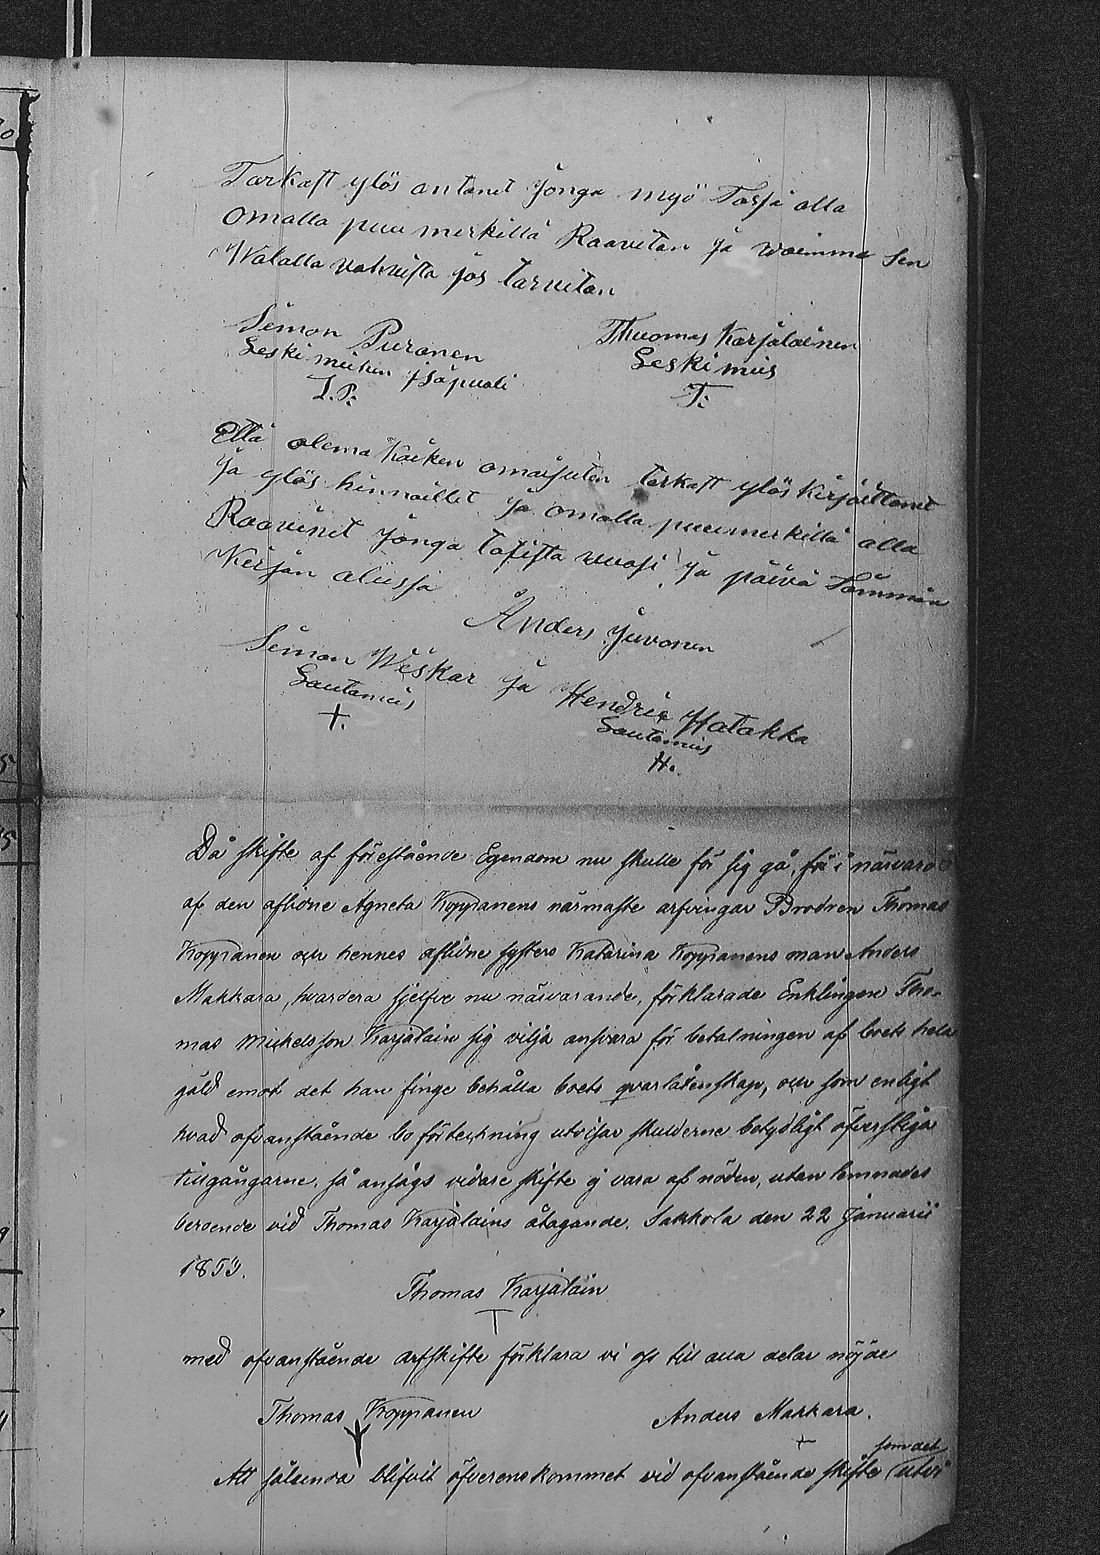 Tarkast ylös antanet jonga myö Tasfä alla
omalla puumerkillä Raavitan ja woimma sen
Walalla vahvista jos tarvitan
Simon Puranen
Thuomas Karjalainen
Leski miehen Isäpuoli
Leskimies
S. P:
T:
Että olema kaiken omaisuten tarkast ylös kirjoittanet
ja ylös hinnoillet ja omalla puumerkillä alla
Raavinet jonga tosista vuosi ja päivä Tämmän
Kirjan alussa
Anders Juvonen
Simon Weskar ja Hendrix Hatakka
Lautamies
Lautamies
+.
H.
Då skifte af förestående Egendom nu skulle för sig gå, för i närvaro
af den aflidne Agneta Koppanens närmaste arfvingar Brodren Thomas
Koppanen och hennes aflidne systers Katarina Koppanens man Anders
Makkara, hvardera sjelfve nu närvarande, förklarade Enklingen Tho-
mas Mickelsson Karjalain sig vilja ansvara för betalningen af boets hela
gäld emot det han finge behålla boets qvarlåtenskap, och som enligt
hvad ofvanstående boförteckning utvisar skulderne betydligt öfverstiga
tillgångarne, så ansågs vidare skifte ej vara af nöden, utan lemnades
beroende vid Thomas Karjalains åtagande. Sakkola den 22 Januarii
1853.
Thomas Karjalain
T
med ofvanstående arfskifte förklara vi oss till alla delar nöjde
Thomas Koppanen
Anders Makkara.
+
som det
Att sålunda blifvit öfverenskommet vid ofvanstående skifte utvi